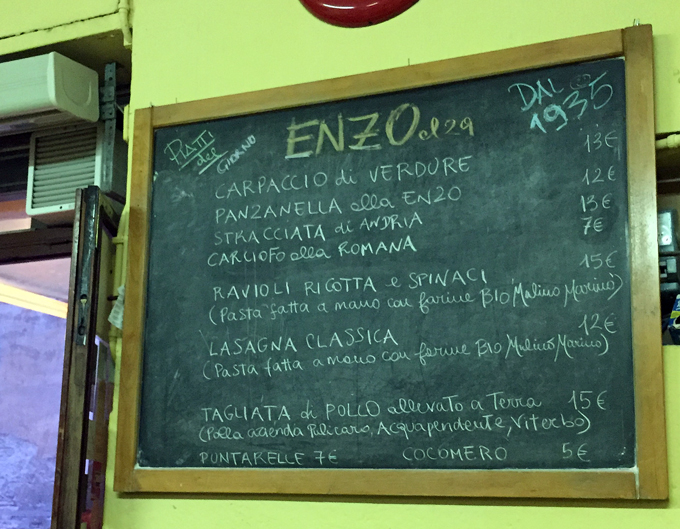 PIATTI del GIORNO
ENZO al 29
DAL 1935
CARPACCIO di VERDURE 13€
PANZANELLA alla ENZO 12€
STRACCIATA di ANDRIA 13€
CARCIOFO alla ROMANA 7€
RAVIOLI RICOTTA e SPINACI 15€
(Pasta fatta a mano con farine BIO Mulino Marino)
LASAGNA CLASSICA 12€
(Pasta fatta a mano con farine BIO Mulino Marino)
TAGLIATA di POLLO allevato a Terra 15€
(Polla azienda Pulicaro, Acquapendente, Viterbo)
PUNTARELLE 7€ COCOMERO 5€